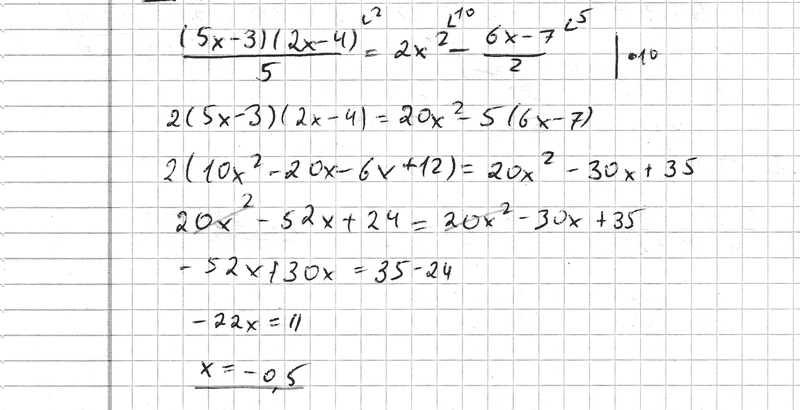 (5x-3)(2x-4)/5 ∟2 = 2x² ∟10 - (6x-7)/2 ∟5 | •10
2(5x-3)(2x-4) = 20x² - 5(6x-7)
2(10x² - 20x - 6x + 12) = 20x² - 30x + 35
20x² - 52x + 24 = 20x² - 30x + 35
- 52x + 30x = 35 - 24
- 22x = 11
x = - 0,5